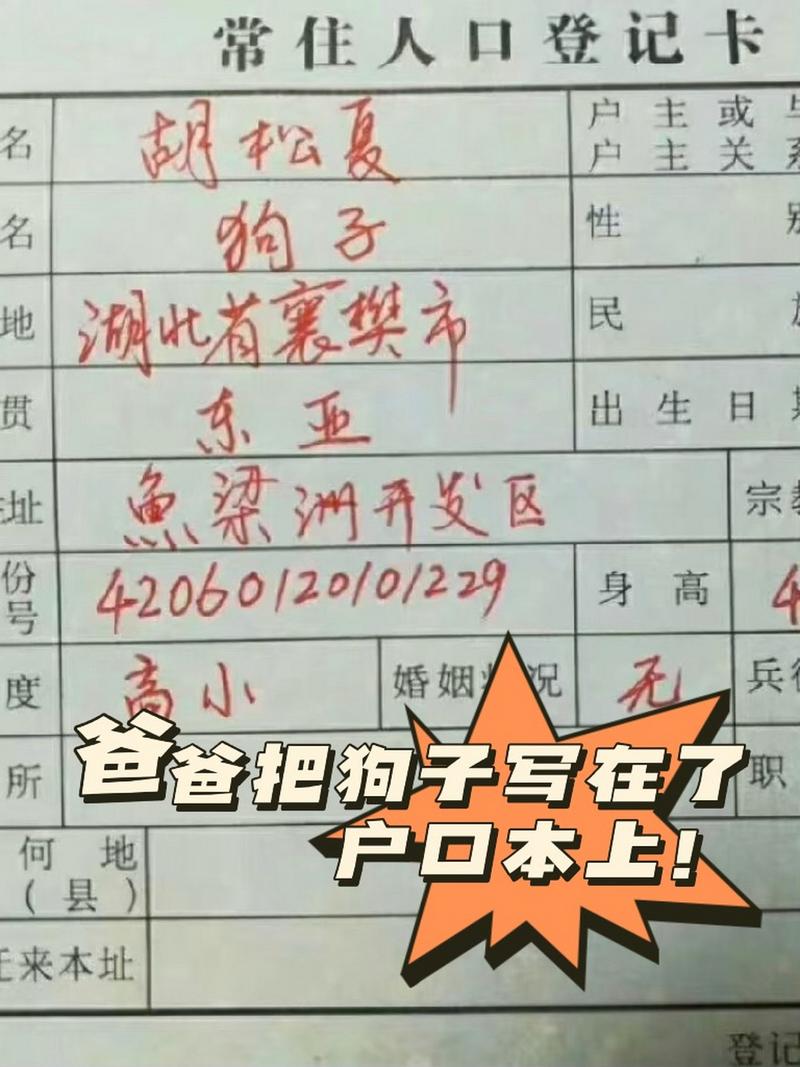 常住人口登记卡
名 胡松夏 户主或与
户主关系
名 狗子 性别
地 湖北省襄樊市 民族
贯 东亚 出生日期
住址 鱼梁洲开发区 宗教
份号 42060120101229 身高 4
度 高小 婚姻状况 无 兵役
所 职
爸爸把狗子写在了
户口本上!
何地
(县)
迁来本址
登记